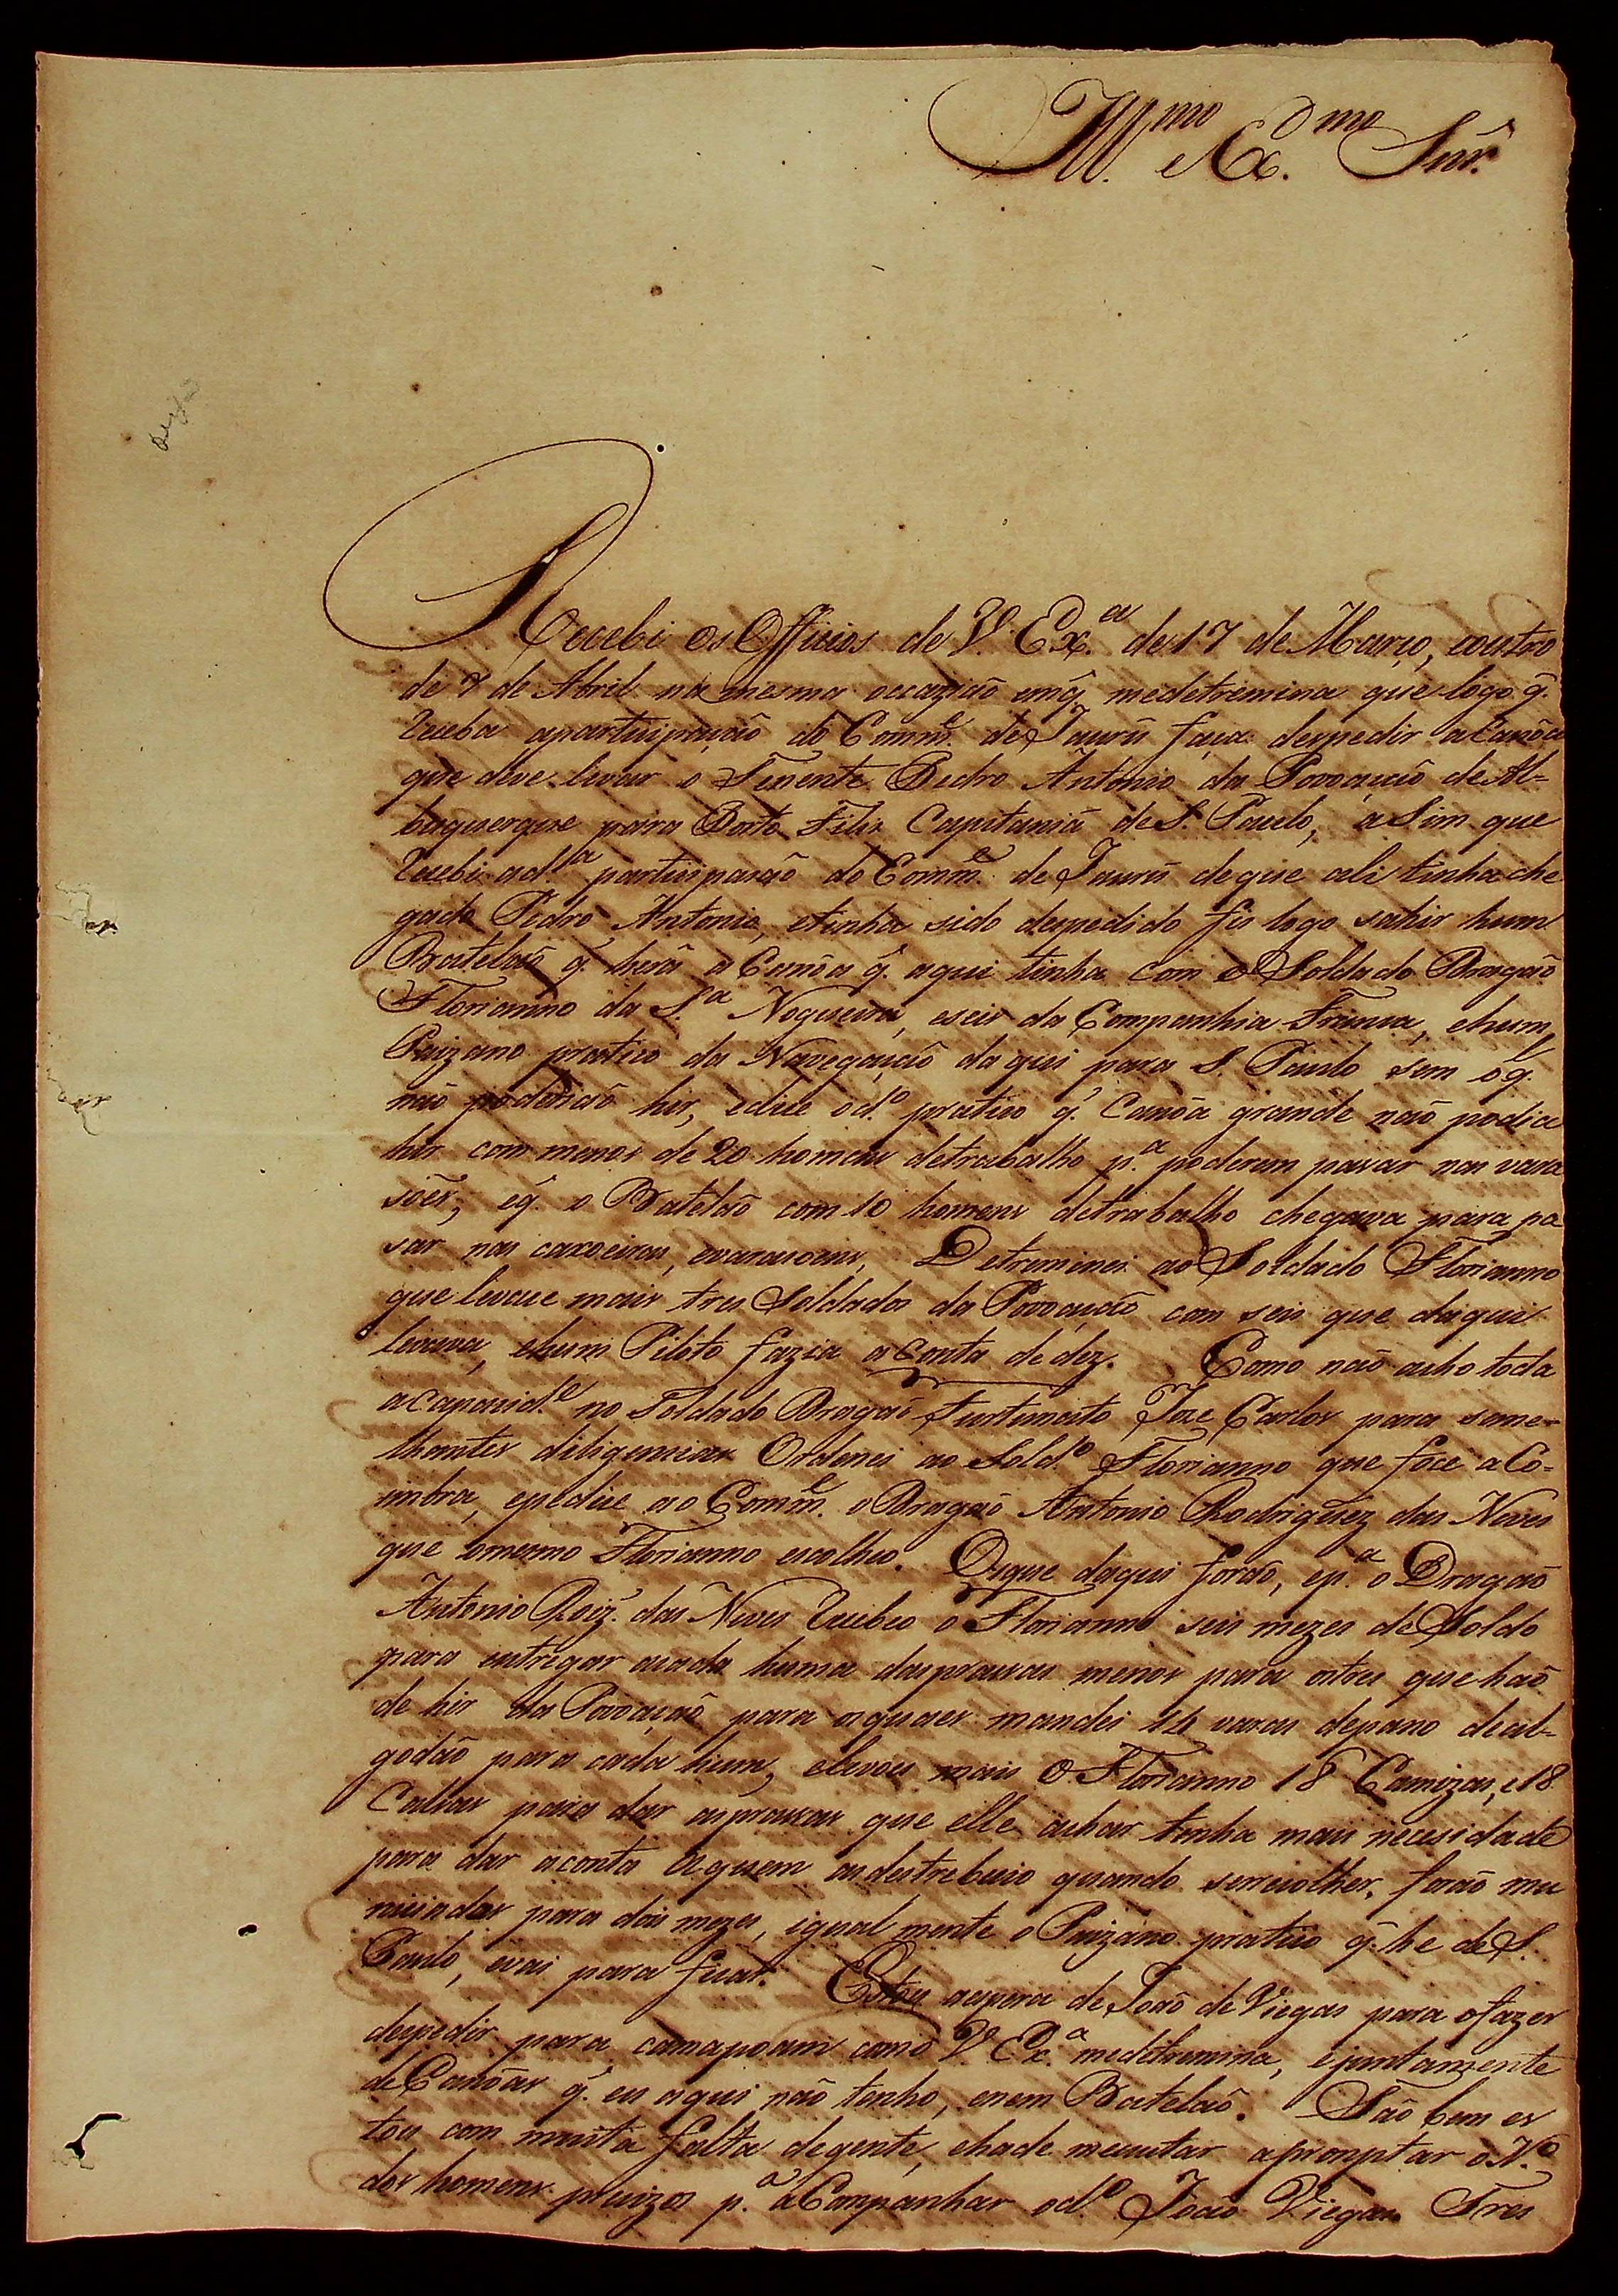 Ill.mo e Ex.mo Snr.
Recebi os Officios de V. Ex.a de 17 de Março, eoutro
de 7 de Abril na mesma occazião emq̃ medetremina que logo q̃.
Receba aparticipação do Comm.e de Jaurú faça despedir a Canôa
que deve levar o Tenente Pedro Antonio da Povoação de Al=
buquerque para Porto Felis Capitania de S. Paulo, a Sim que
Recebi ad.a participasão do Comm.e de Jaurú deque ali tinha che
gado Pedro Antonio, etinha sido despedido fis logo sahir hum
Batelaõ q̃. herâ a Canôa q̃. aqui tinha com o Soldado Dragaõ
Florianno da S.a Nogueira, eseis da Companhia Franca, ehum
Paizano pratico da Navegação daqui para S. Paulo sem oq̃.
não poderião hir, edice od.o pratico q̃. Canôa grande não podia
hir com menos de 20 homens detrabalho p.a poderem pasar nas vara
sões, eq̃. o Batelão com 10 homens detrabalho chegava para pa
sar nas caxoeiras, evarasoens, Detreminei ao Soldado Florianno
que levace mais tres Soldados da Povoação com seis que daqui
levava, ehum Piloto fazia a conta de dez. Como não acho toda
acapasid.e no Soldado Dragaõ Furtunato Joze Carlos para seme=
lhantes diligensias Ordenei ao Sold.o Florianno que foce a Co=
imbra, epedice ao Comm.e o Dragão Antonio Rodriguez das Neves
que omesmo Florianno escolheo. Osque daqui forão, ep.a o Dragaõ
Antonio Roiz. das Neves Recibeo o Florianno seis mezes de Soldo
para entregar acada huma daspracas menos para ostres que haõ
de hir da Povoação para osquaes mandei 14 varas depano deal-
godão para cada hum, elevou mais o Florianno 18 Camizas, e 18
Calsas para dar aspracas que elle achar tenha mais necesidade
para dar aconta aquem asdestrebuio quando serecolher, forão mu
niciados para dois mezes, igual mente o Paizano pratico q̃. he de S.
Paulo, evai para ficar. Estou aespera de João de Viegas para ofazer
despedir para camapoam como V. Ex.a medetremina, ejuntamente
de Canôas q̃. eu aqui não tenho, enem Batelão. São bem es
tou com muita falta degente, ehade mecustar apromptar o N.o
dos homens precizos p.a aCompanhar od.o João Viegas. Tres